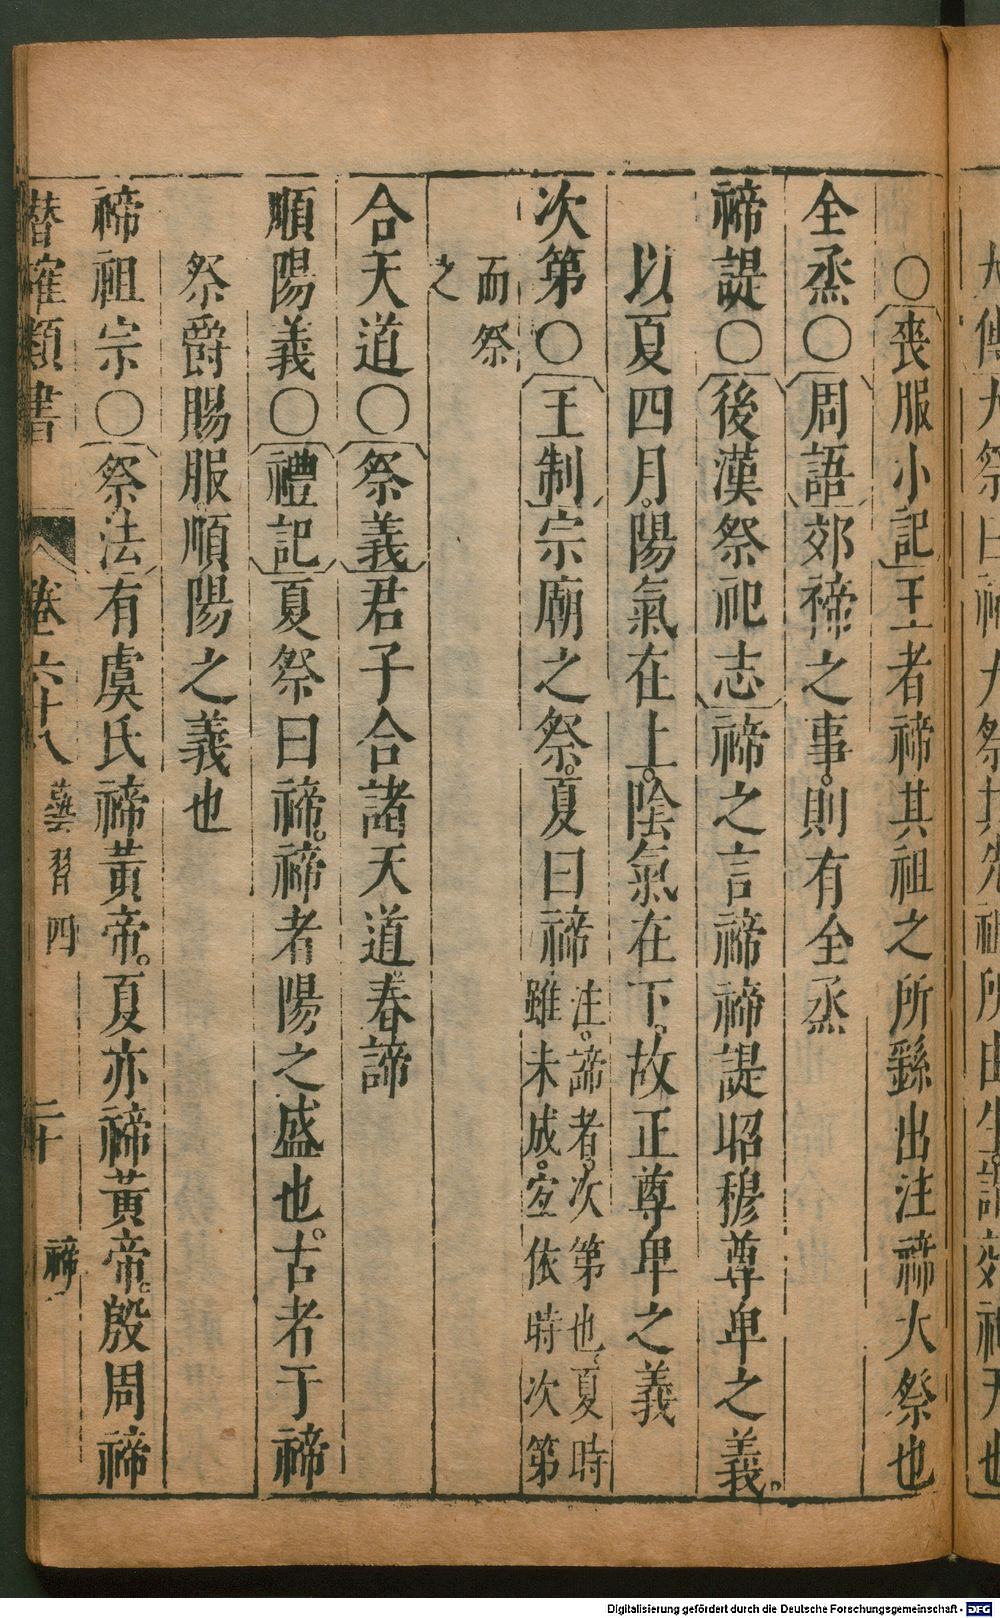 〇喪服小記王者禘其祖之所繇出注禘大祭也
全烝〇周語郊禘之事則有全烝
禘諟〇後漢祭祀志禘之言禘禘諟昭穆尊卑之義
以夏四月陽氣在上陰氣在下故正尊卑之義
次第〇王制宗廟之祭夏曰禘注諦者次第也夏時
雖未成宜依時次第
而祭
之
合天道〇祭義君子合諸天道春諦
順陽義〇禮記夏祭曰禘禘者陽之盛也古者于禘
祭爵賜服順陽之義也
禘祖宗〇祭法有虞氏禘黃帝夏亦禘黃帝殷周禘
潛確類書 卷六十八 藝習四 二十 禘
Digitalisierung gefördert durch die Deutsche Forschungsgemeinschaft - DFG